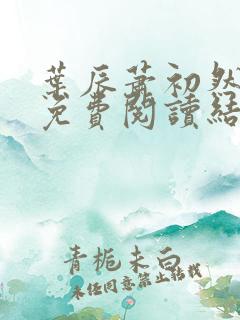 葉辰蕭初然
免費閱讀結
青梔未白
未經同意禁止轉載